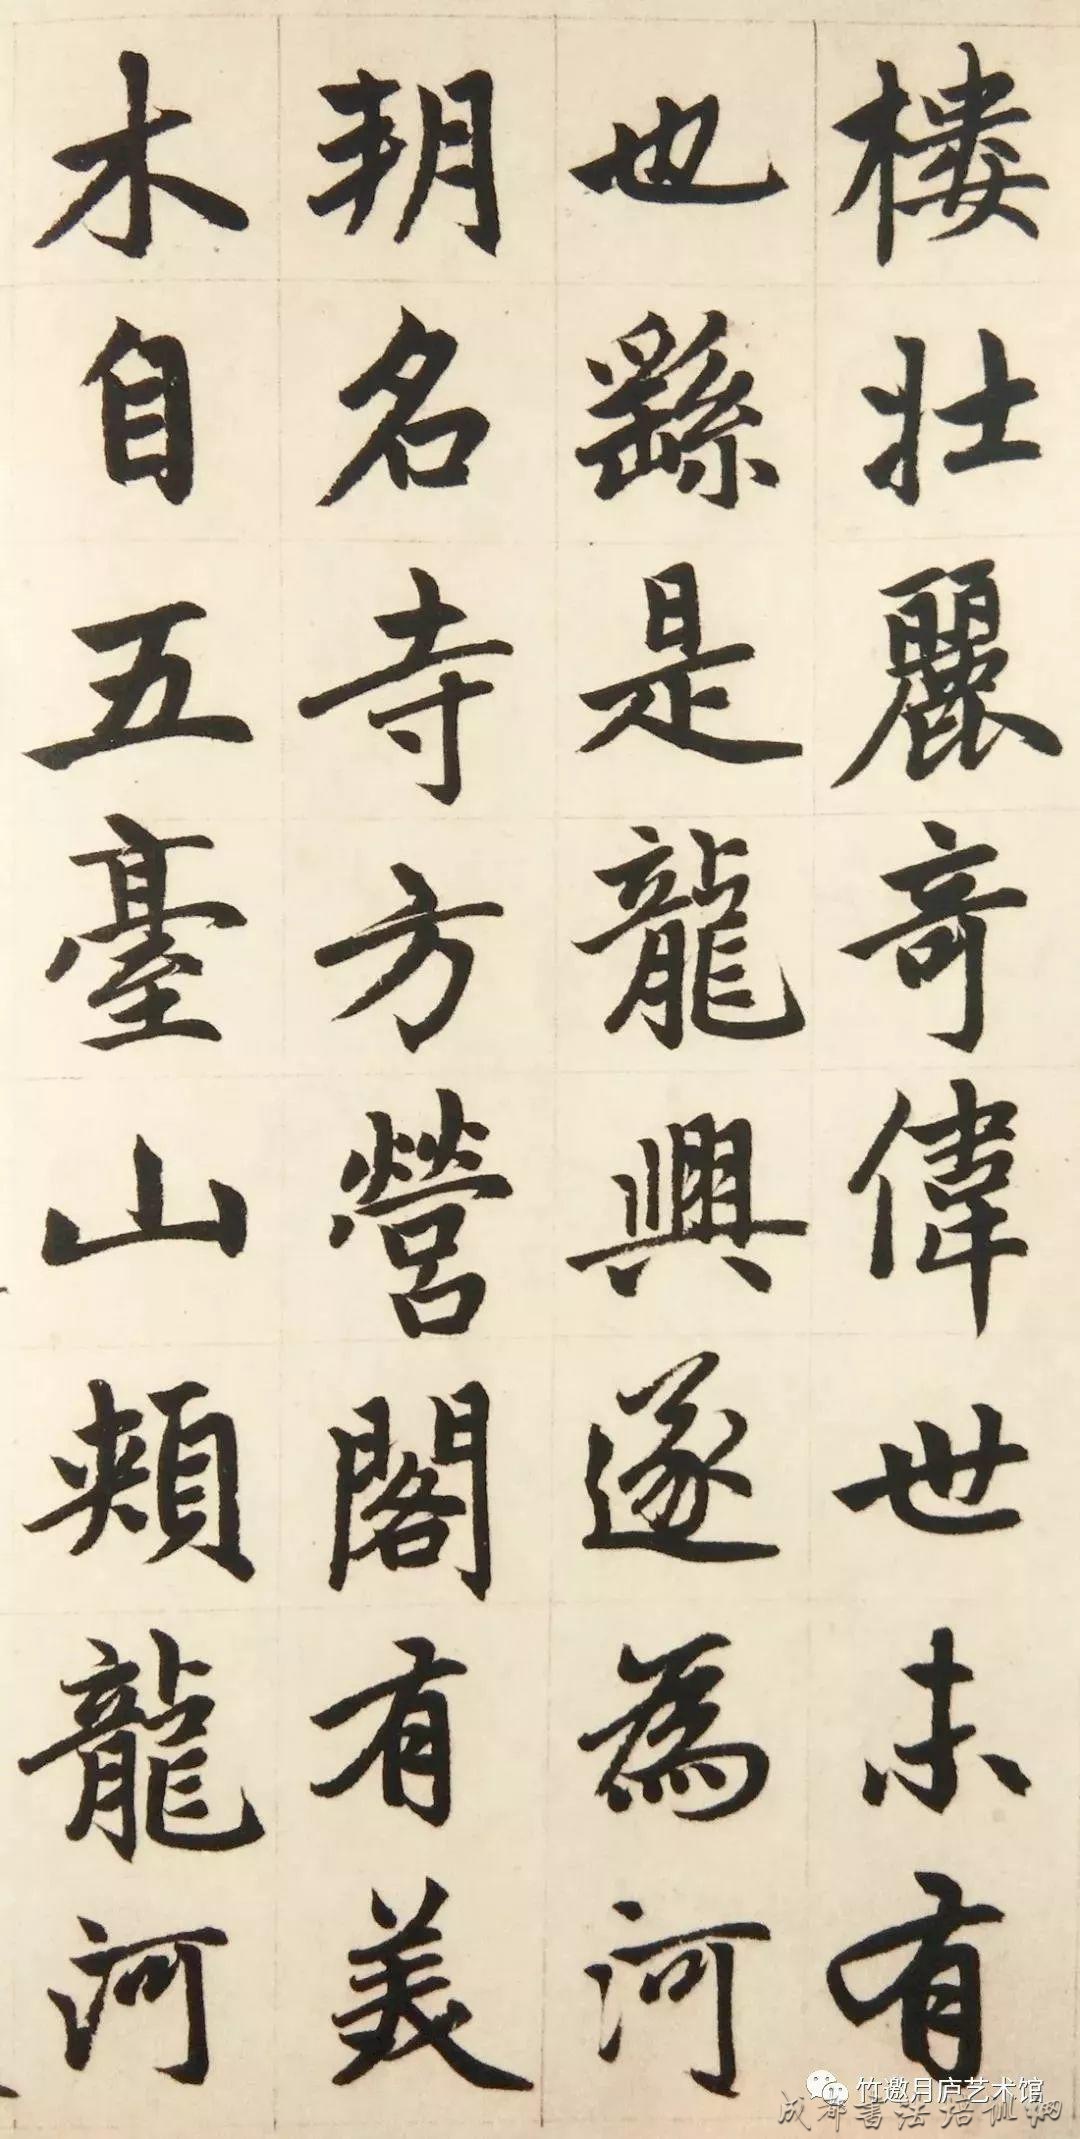 樓壯麗奇偉世未有
也繇是龍興遂為河
朔名寺方營閣有美
木自五臺山頰龍河
竹邀月庐艺术馆
成都書法培训網